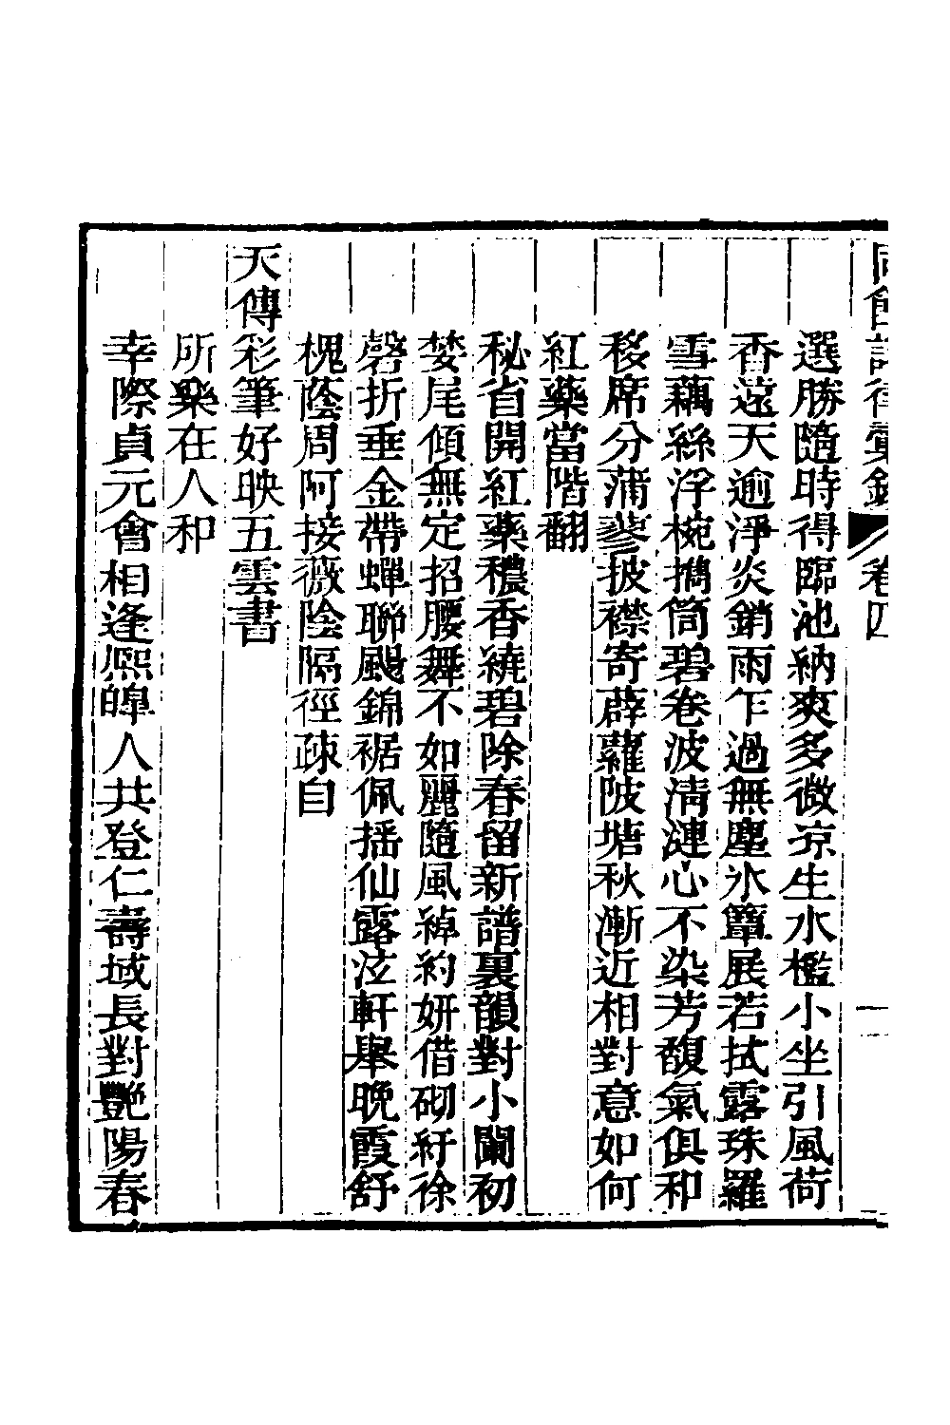 同館詩律彙鈔 卷四 一
選勝隨時得臨池納爽多微凉生水檻小坐引風荷
香遠天逾淨炎銷雨乍過無塵氷簟展若拭露珠羅
雪藕絲浮椀擕筒碧卷波清漣心不染芳馥氣俱和
移席分蒲蓼披襟寄薜蘿陂塘秋漸近相對意如何
紅藥當階翻
秘省開紅藥穠香繞碧除春留新譜裏韻對小闌初
婪尾傾無定招腰舞不如麗隨風綽約妍借砌紆徐
磬折垂金帶蟬聯颺錦裾佩揺仙露泫軒舉晚霞舒
槐蔭周阿接薇陰隔徑疎自
天傳彩筆好映五雲書
所樂在人和
幸際貞元會相逢熙皥人共登仁壽域長對艷陽春